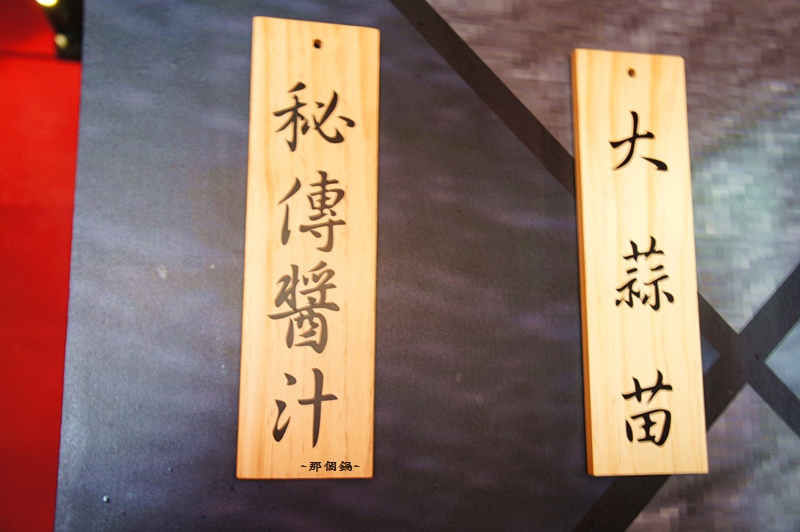 秘傳醬汁
~那個鍋~
大蒜苗